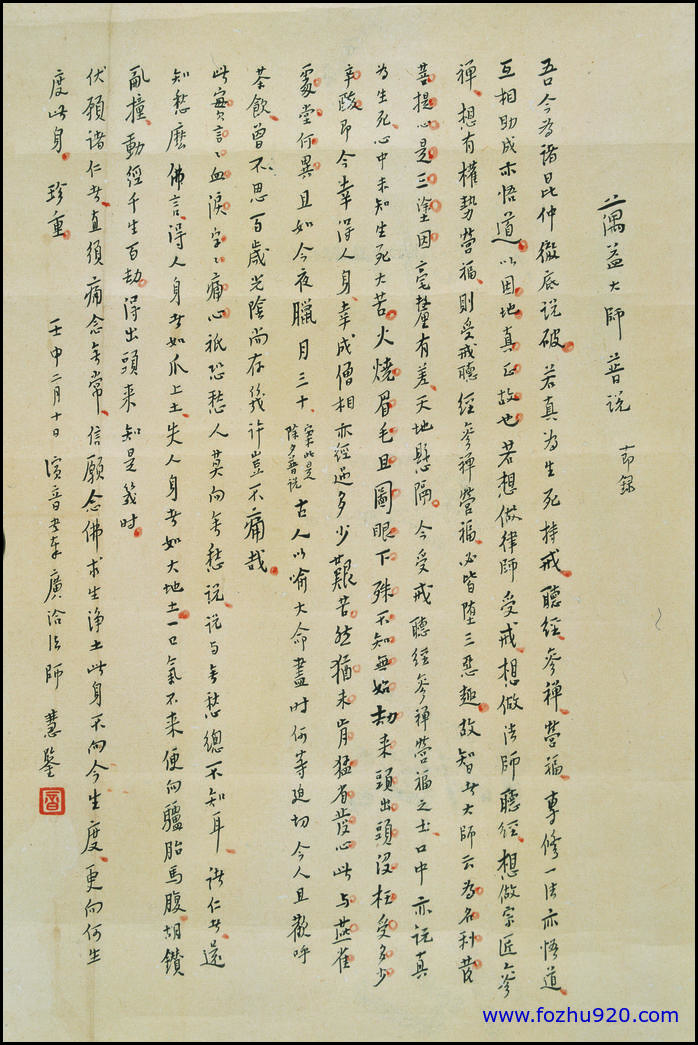 蕅益大師普說 節錄
吾今為諸昆仲徹底說破若真為生死持戒聽經參禪營福專修一法亦悟道
互相助成亦悟道以因地真正故也若想做律師受戒想做法師聽經想做宗匠參
禪想有權勢營福則受戒聽經參禪營福必皆墮三惡趣故智者大師云為名利發
菩提心是三塗因毫釐有差天地懸隔今受戒聽經參禪營福之士口中亦說真
為生死心中未知生死大苦火燒眉毛且圖眼下殊不知無始劫來頭出頭沒枉受多少
辛酸即今幸得人身幸成僧相亦經過多少艱苦然猶未肯猛省發心此與燕雀
處堂何異且如今夜臘月三十
案此是
除夕普說
古人以喻大命盡時何等迫切今人且歡呼
茶飲曾不思百歲光陰尚存幾許豈不痛哉
此實言言血淚字字痛心祇恐愁人莫向無愁說說與無愁總不知耳諸仁者還
知愁麼佛言得人身者如爪上土失人身者如大地土一口氣不來便向驢胎馬腹胡鑽
亂撞動經千生百劫得出頭來知是幾時
伏願諸仁者直須痛念無常信願念佛求生淨土此身不向今生度更向何生
度此身 珍重
壬申二月十日 演音書奉 廣洽法師 慧鑒
音
www.fozhu920.com